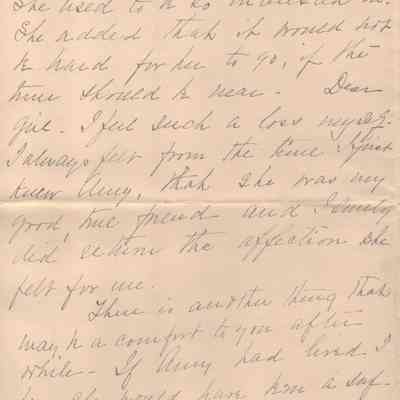 She used to be so interested in.
She added that it would not
be hard for her to go, if the
time should be near - Dear
girl - I feel such a loss myself.
I always felt from the time I first
knew Amy, that she was my
good, true friend and I surely
did return the affection she
felt for me.
There is another thing that
may be a comfort to you after
while - If Amy had lived I
would have been a suf-